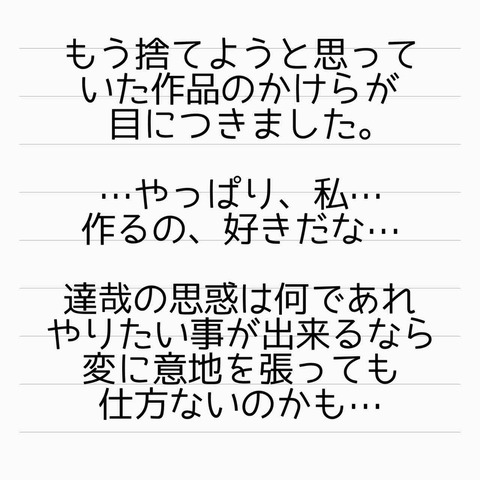 もう捨てようと思って
いた作品のかけらが
目につきました。
…やっぱり、私…
作るの、好きだな…
達哉の思惑は何であれ
やりたい事が出来るなら
変に意地を張っても
仕方ないのかも…